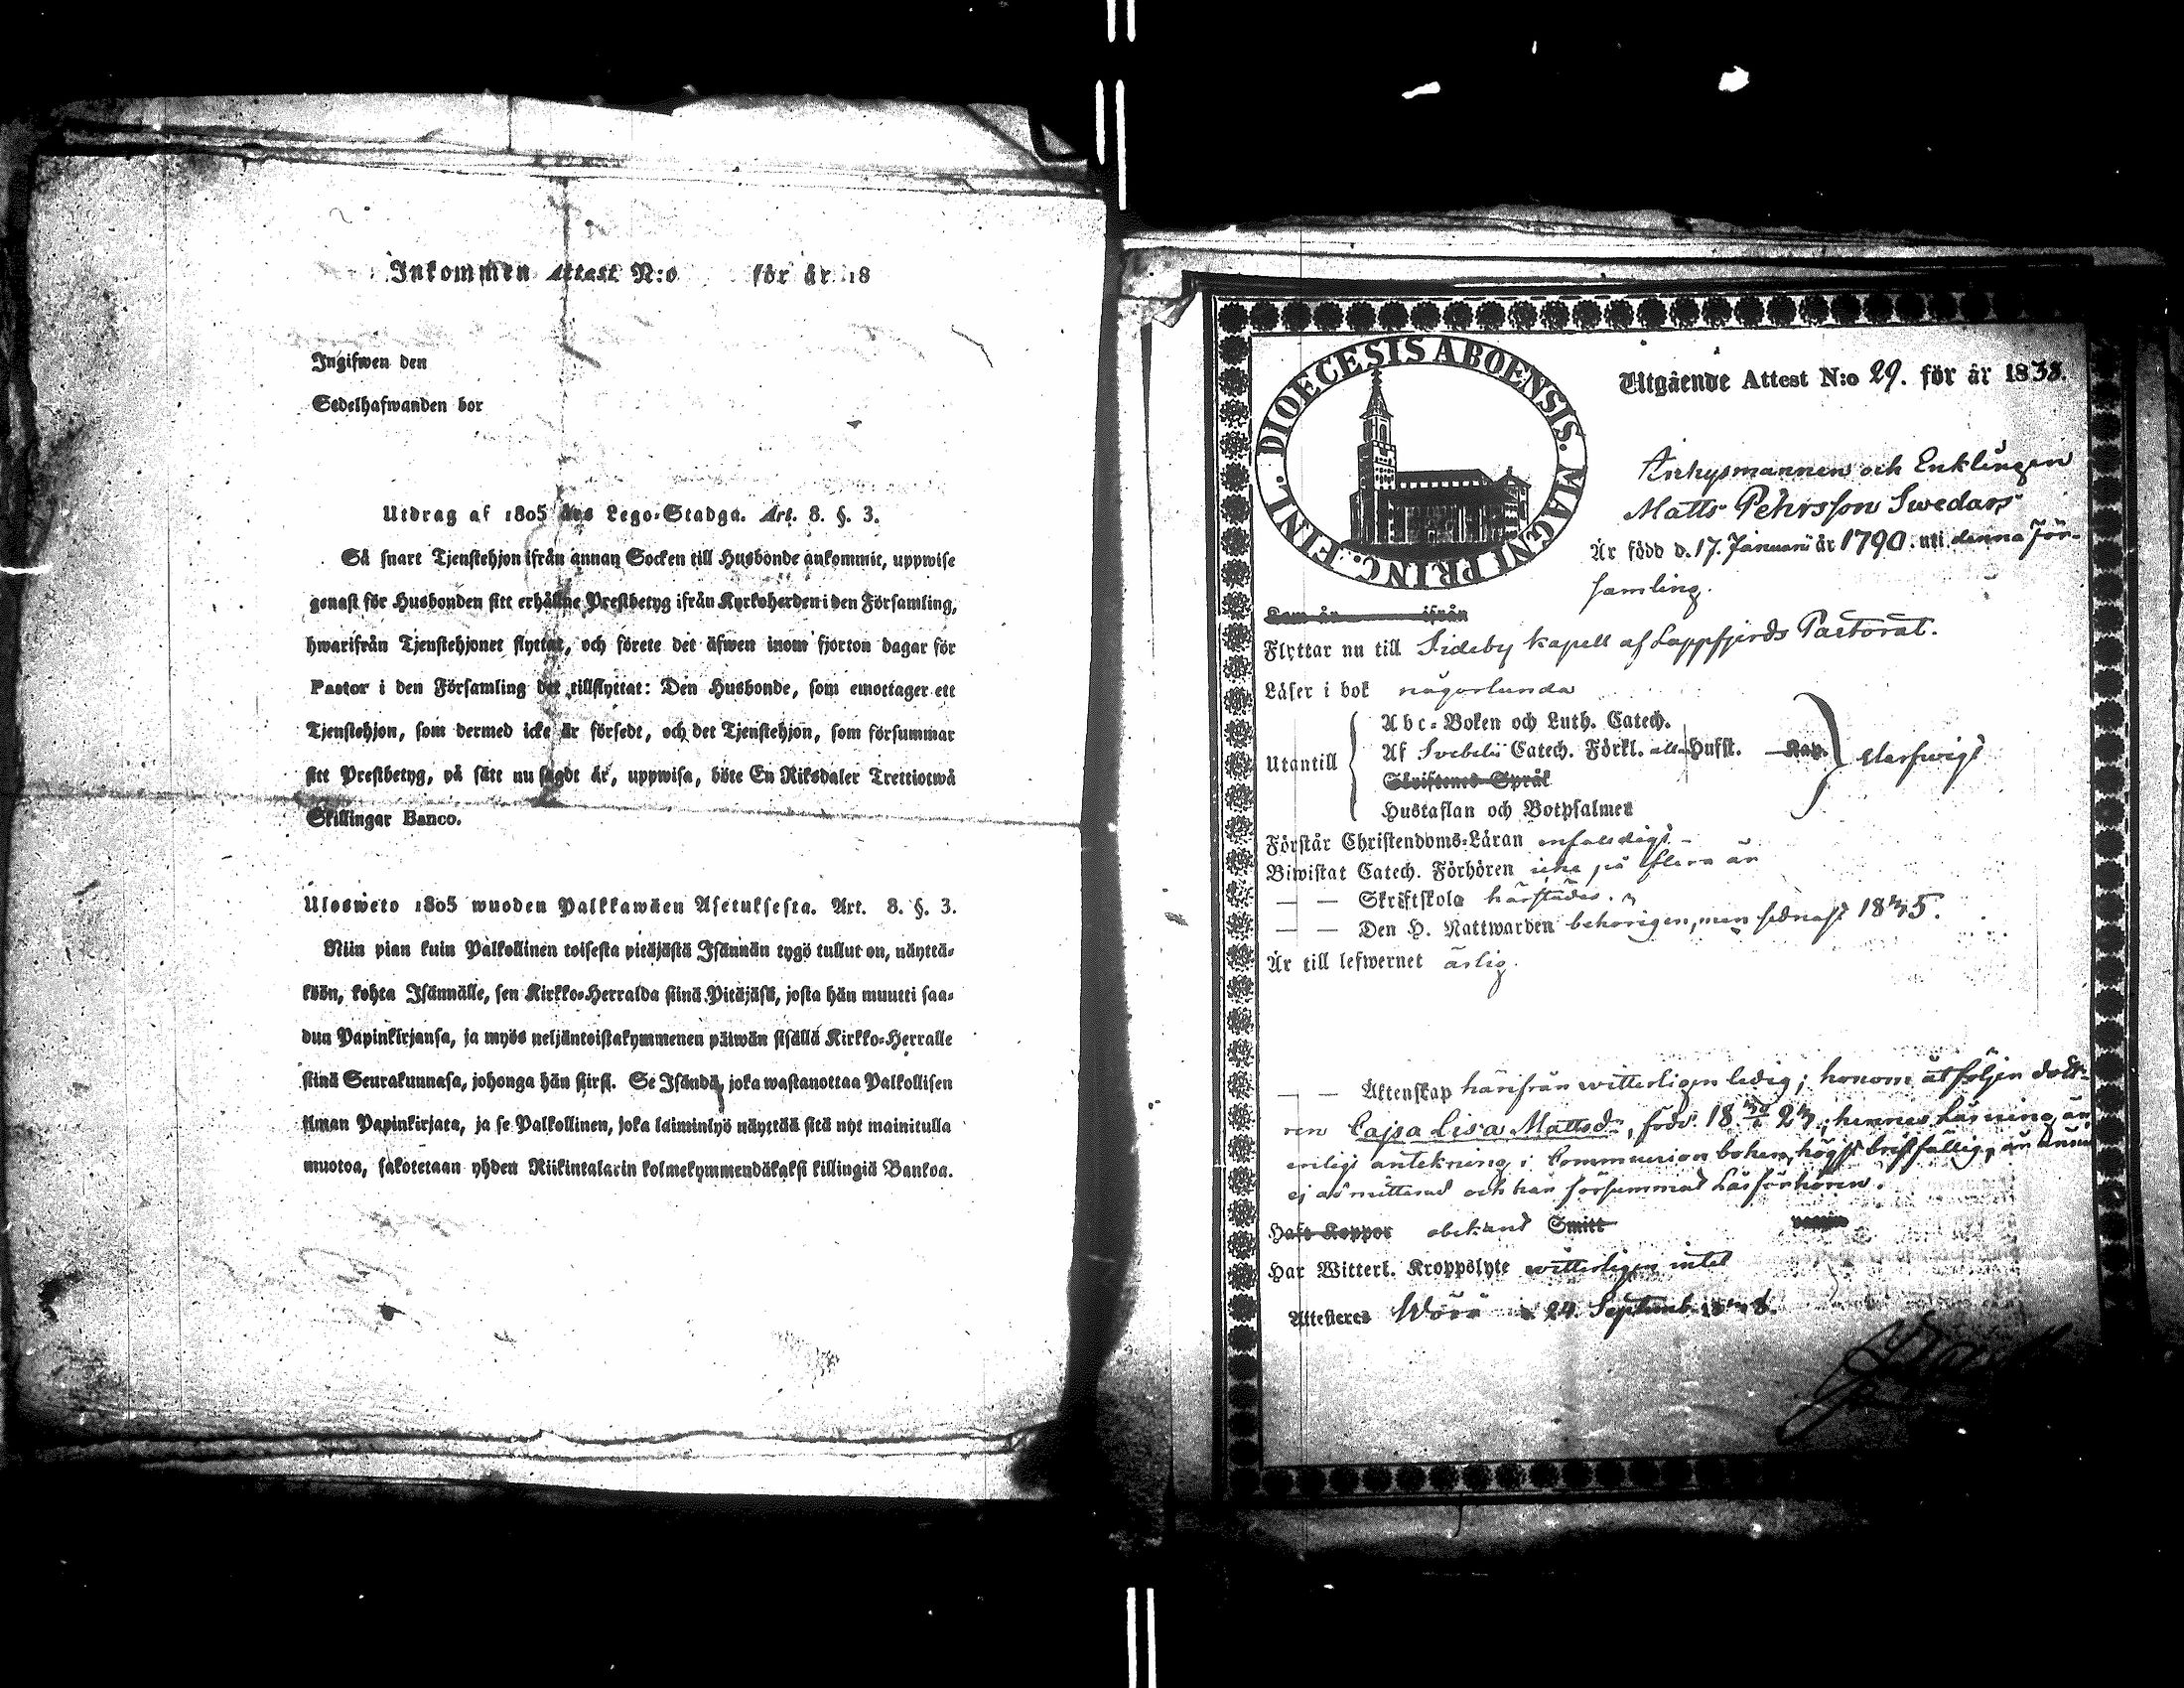 Inkommen Attest N:o för år 18
Ingifwen den
Sedelhafwanden bor
Utdrag af 1805 års Lego-Stadga. Art. 8. §. 3.
Så snart Tjenstehjon ifrån annan Socken till Husbonde ankommit, uppwise
genast för Husbonden sitt erhållne Prestbetyg ifrån Kyrkoherden i den Församling,
hwarifrån Tjenstehjonet flyttat, och förete det äfwen inom fjorton dagar för
Pastor i den Församling det tillflyttat: Den Husbonde, som emottager ett
Tjenstehjon, som dermed icke är försedt, och det Tjenstehjon, som försummar
sitt Prestbetyg, på sätt nu sagdt är, uppwisa, böte En Riksdaler Trettiotwå
Skillingar Banco.
Ulosweto 1805 wuoden Palkkawäen Asetuksesta. Art. 8. §. 3.
Niin pian kuin Palkollinen toisesta pitäjästä Isännän tygö tullut on, näyttä-
köön, kohta Isännälle, sen Kirkko-Herralda siinä Pitäjäsä, josta hän muutti saa-
dun Papinkirjansa, ja myös neljäntoistakymmenen päiwän sisällä Kirkko-Herralle
siinä Seurakunnasa, johonga hän siirsi. Se Isändä, joka wastanottaa Palkollisen
ilman Papinkirjata, ja se Palkollinen, joka laiminlyö näyttää sitä nyt mainitulla
muotoa, sakotetaan yhden Riikintalarin kolmekymmendäkaksi killingiä Bankoa.
DIOECESIS ABOENSIS. MAGNI PRINC. FINL.
Utgående Attest N:o 29. för år 1838.
och Enklingen
Matts Pehrsson Swedars
Är född d. 17. Januari år 1790. uti denna För-
samling.
Kom år ifrån
Flyttar nu till Sideby kapell af Lappfjerds Pastorat.
Läser i bok någorlunda
Abc-Boken och Luth. Catech.
Utantill Af Svebelii Catech. Förkl. alla Hufst. Kap.
Skriftenes Språk
Hustaflan och Botpsalmer
Förstår Christendoms-Läran enfaldigt
Biwistat Catech. Förhören icke på flera år
— — Skriftskola härstädes.
— — Den H. Nattwarden behörigen, men sednast 1835.
Är till lefwernet ärlig.
— — Äktenskap härifrån witterligen ledig; honom åtföljer dott-
ren Cajsa Lisa Mattsd:r, född 18 23, hennes läsning är
enligt antekning i Communion boken högst bristfällig, är ännu
ej admitterad och har försummat Läsförhören.
Haft Koppor obekand Smitt
Har Witterl. Kroppslyte witterligen intet
Attesteres Wörå d. 24. Septemb. 1838.